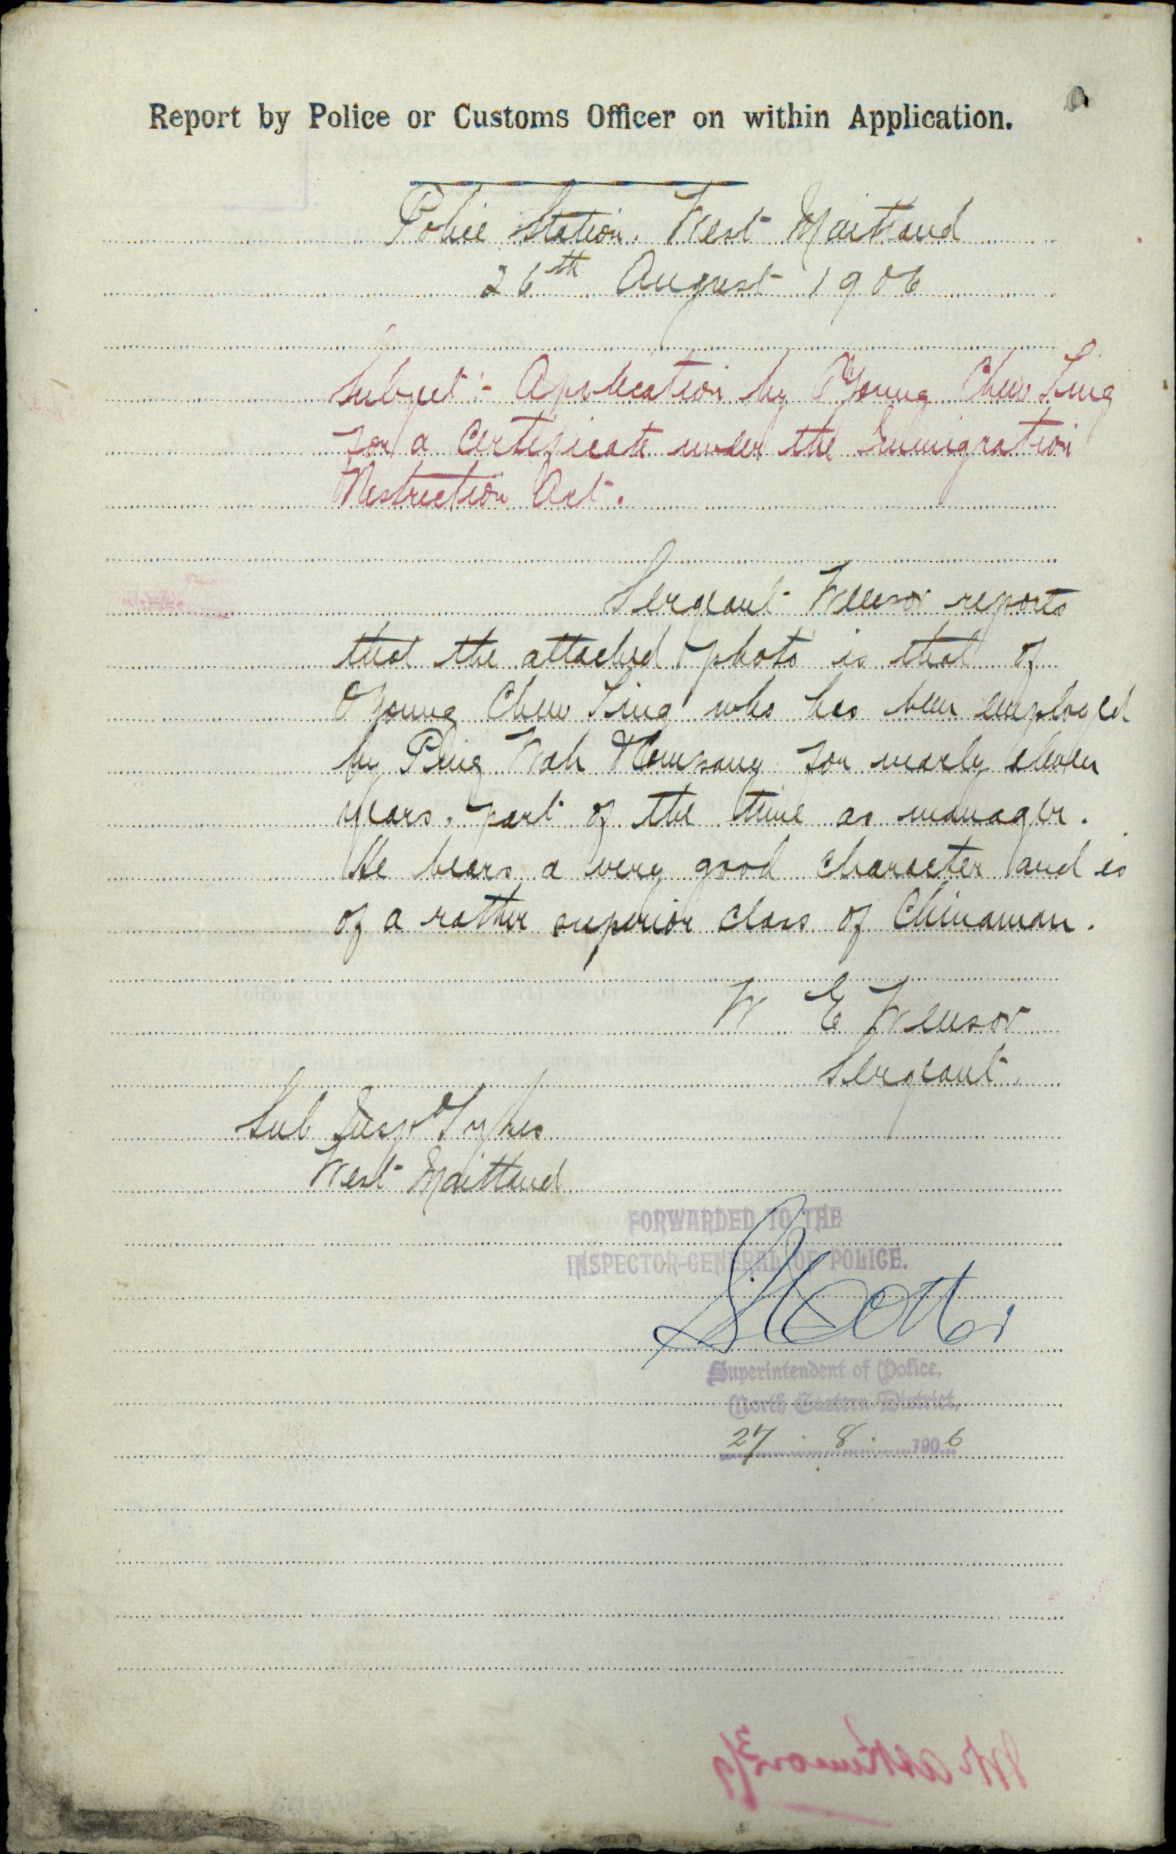 Report by Police or Customs Officer on within Application.
Police Station. West Maitland
26th August 1906
Subject:- Application by O'Young Chew Ling
for a Certificate under the Immigration
Restriction Act.
Sergeant Wensor reports
that the attached photo is that of
O'Young Chew Ling who has been employed
by Ping Wah & Company for nearly eleven
years, part of the time as manager.
He bears a very good character and is
of a rather superior class of Chinaman.
W E Wensor
Sergeant.
Sub Inspr Sykes
West Maitland
FORWARDED TO THE
INSPECTOR-GENERAL OF POLICE.
Superintendent of Police,
North Eastern District,
27 . 8 . 1906
Mr Atkinson 3/9